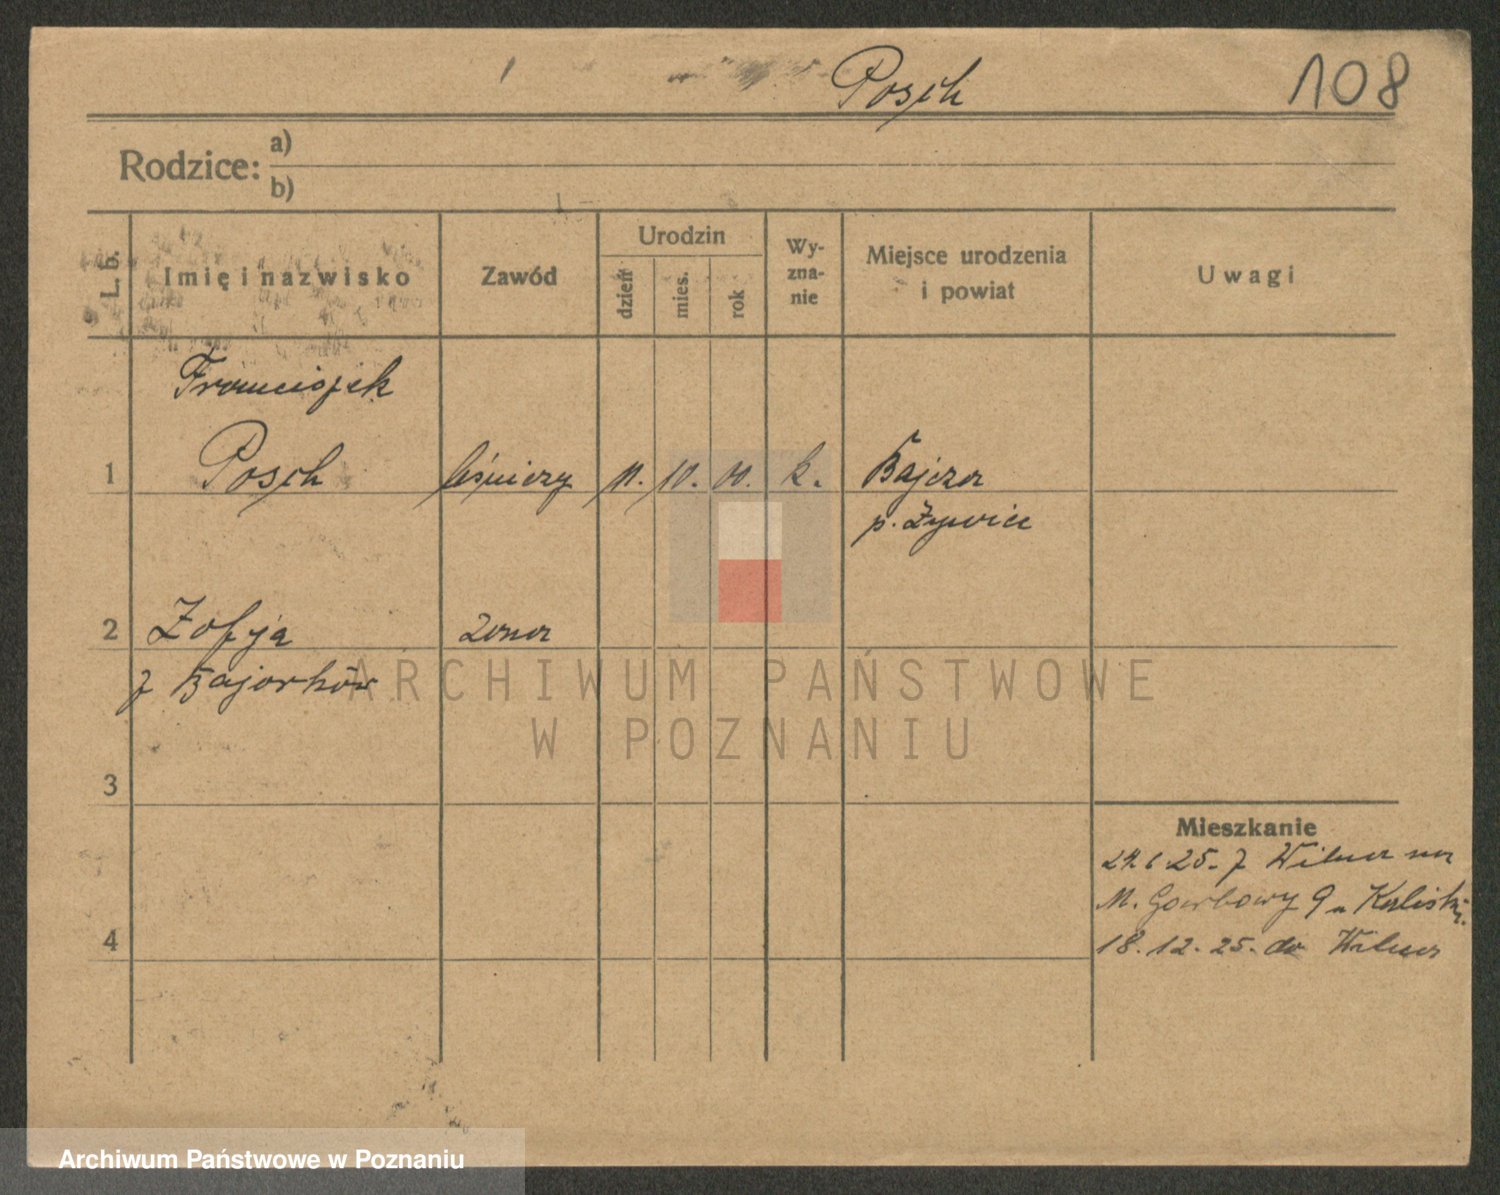 Posch
108
Rodzice: a)
b)
L. b.
Imię i nazwisko
Zawód
Urodzin
dzień
mies.
rok
Wy-
zna-
nie
Miejsce urodzenia
i powiat
Uwagi
Franciszek
1 Posch leśniczy 11. 10. 00. k. Rajcza
p. Żywiec
2 Zofja żona
z Bajorków
ARCHIWUM PAŃSTWOWE
W POZNANIU
3
Mieszkanie
25. z Wilna na
M. Garbary 9 u Kaliski
4
18. 12. 25. do Wilna
Archiwum Państwowe w Poznaniu